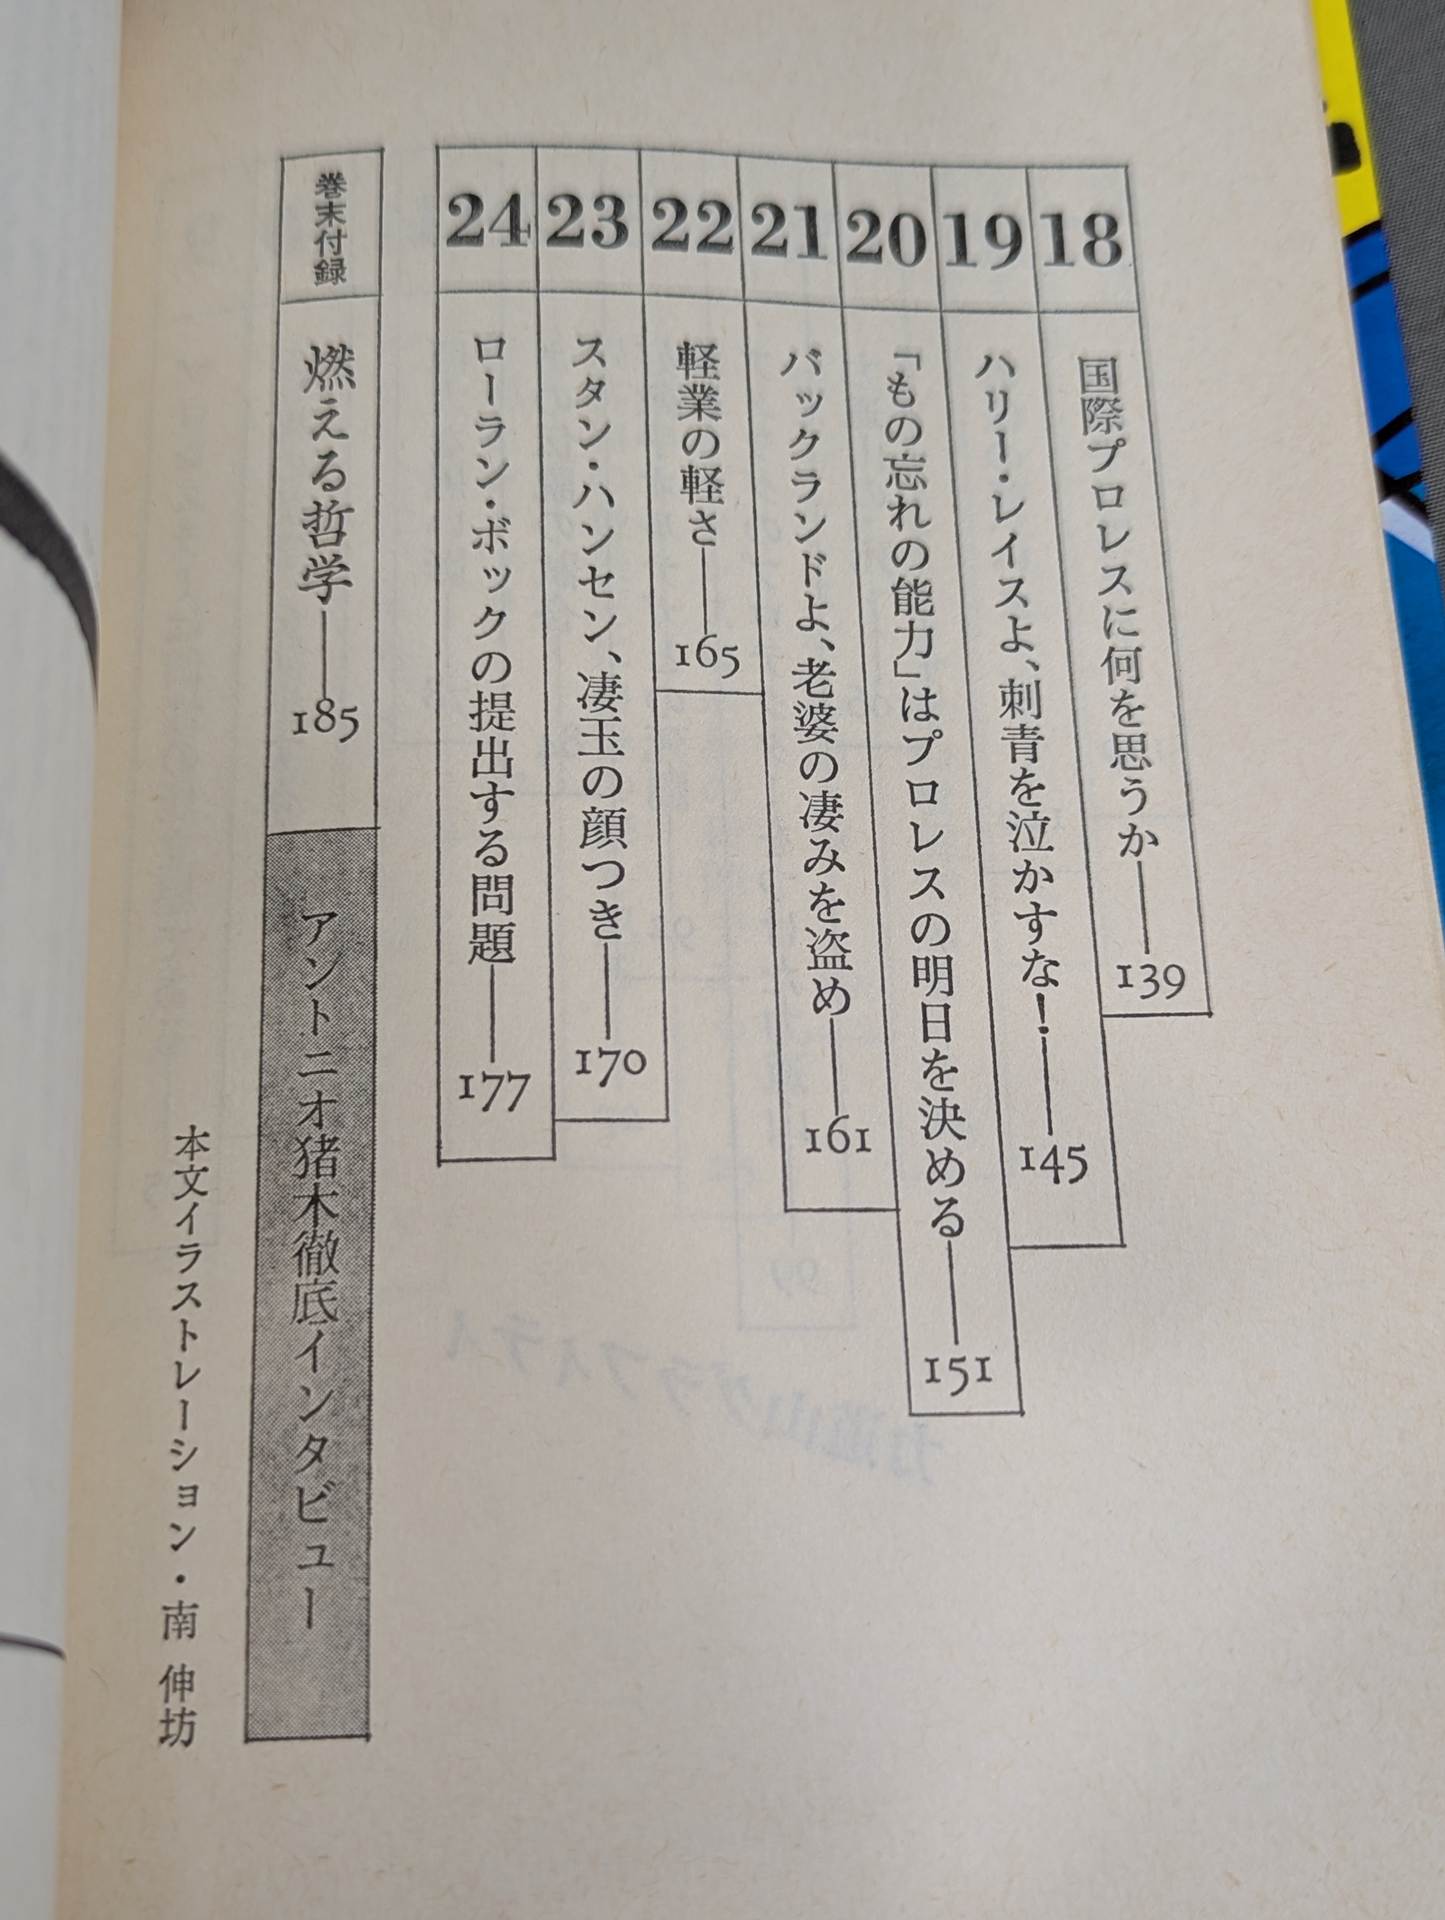 18 国際プロレスに何を思うか——139
19 ハリー・レイスよ、刺青を泣かすな!——145
20 「もの忘れの能力」はプロレスの明日を決める——151
21 バックランドよ、老婆の凄みを盗め——161
22 軽業の軽さ——165
23 スタン・ハンセン、凄玉の顔つき——170
24 ローラン・ボックの提出する問題——177
巻末付録 燃える哲学——185 アントニオ猪木徹底インタビュー
本文イラストレーション・南 伸坊